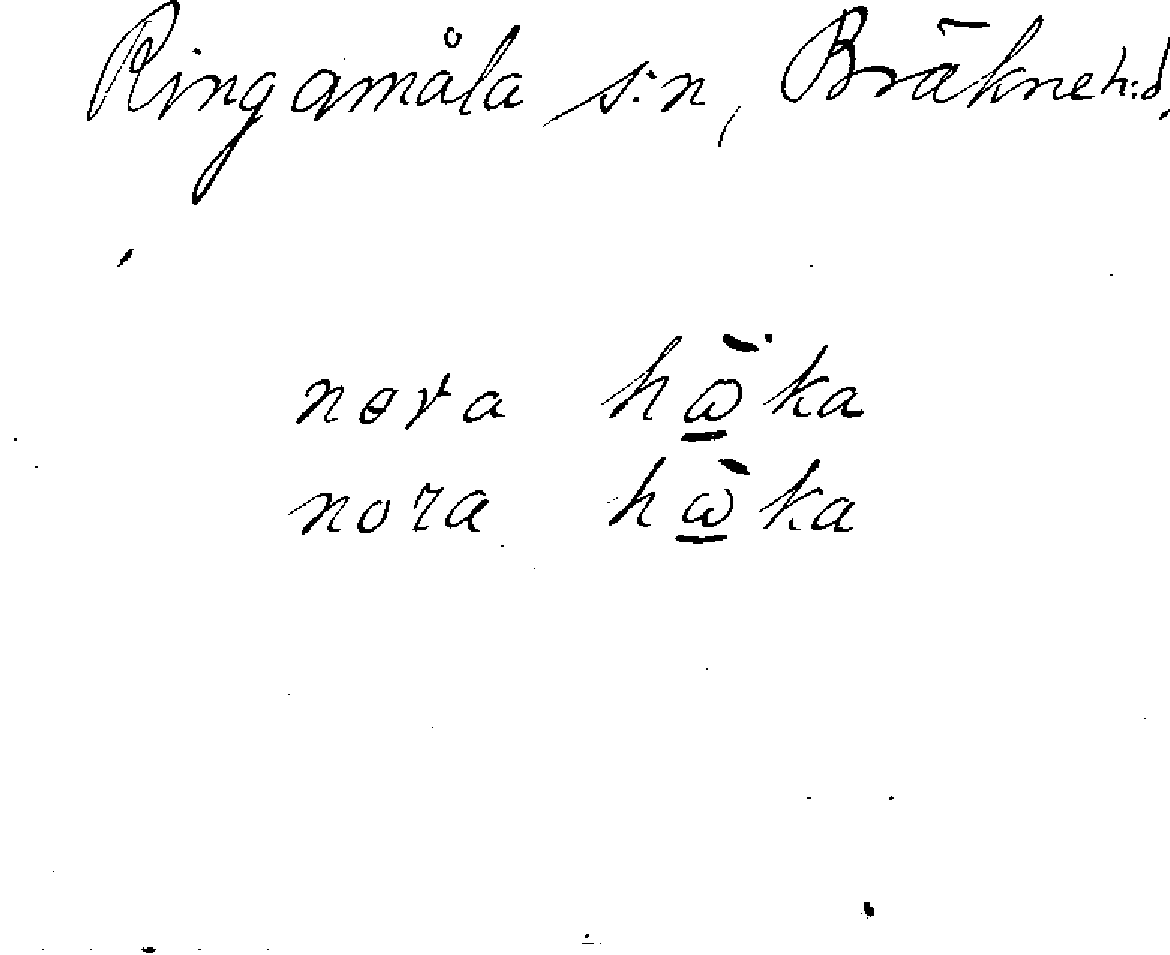 Ringamåla s:n, Bräkneh:d,
nɵra hὼ̲ka
nora hὼ̲ka